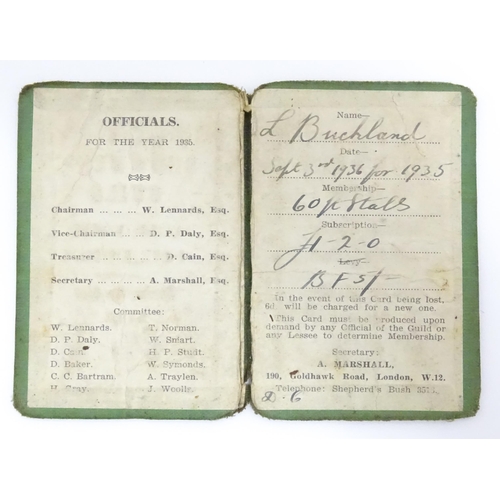 OFFICIALS.
FOR THE YEAR 1935.
Chairman ... ... ... W. Lennards, Esq.
Vice-Chairman ... ... D. P. Daly, Esq.
Treasurer ... ... ... D. Cain, Esq.
Secretary ... ... A. Marshall, Esq.
Committee:
W. Lennards. T. Norman.
D. P. Daly. W. Smart.
D. Cain. H. P. Studt.
D. Baker. W. Symonds.
C. C. Bartram. A. Traylen.
H. Gray. J. Woolls.
Name—
L Buckland
Date—
Sept 3rd 1936 for 1935
Membership—
60 ft Stalls
Subscription—
£1-2-0
B F 5/-
In the event of this Card being lost,
6d. will be charged for a new one.
This Card must be produced upon
demand by any Official of the Guild or
any Lessee to determine Membership.
Secretary:
A. MARSHALL,
190, Goldhawk Road, London, W.12.
Telephone: Shepherd's Bush
D. 6